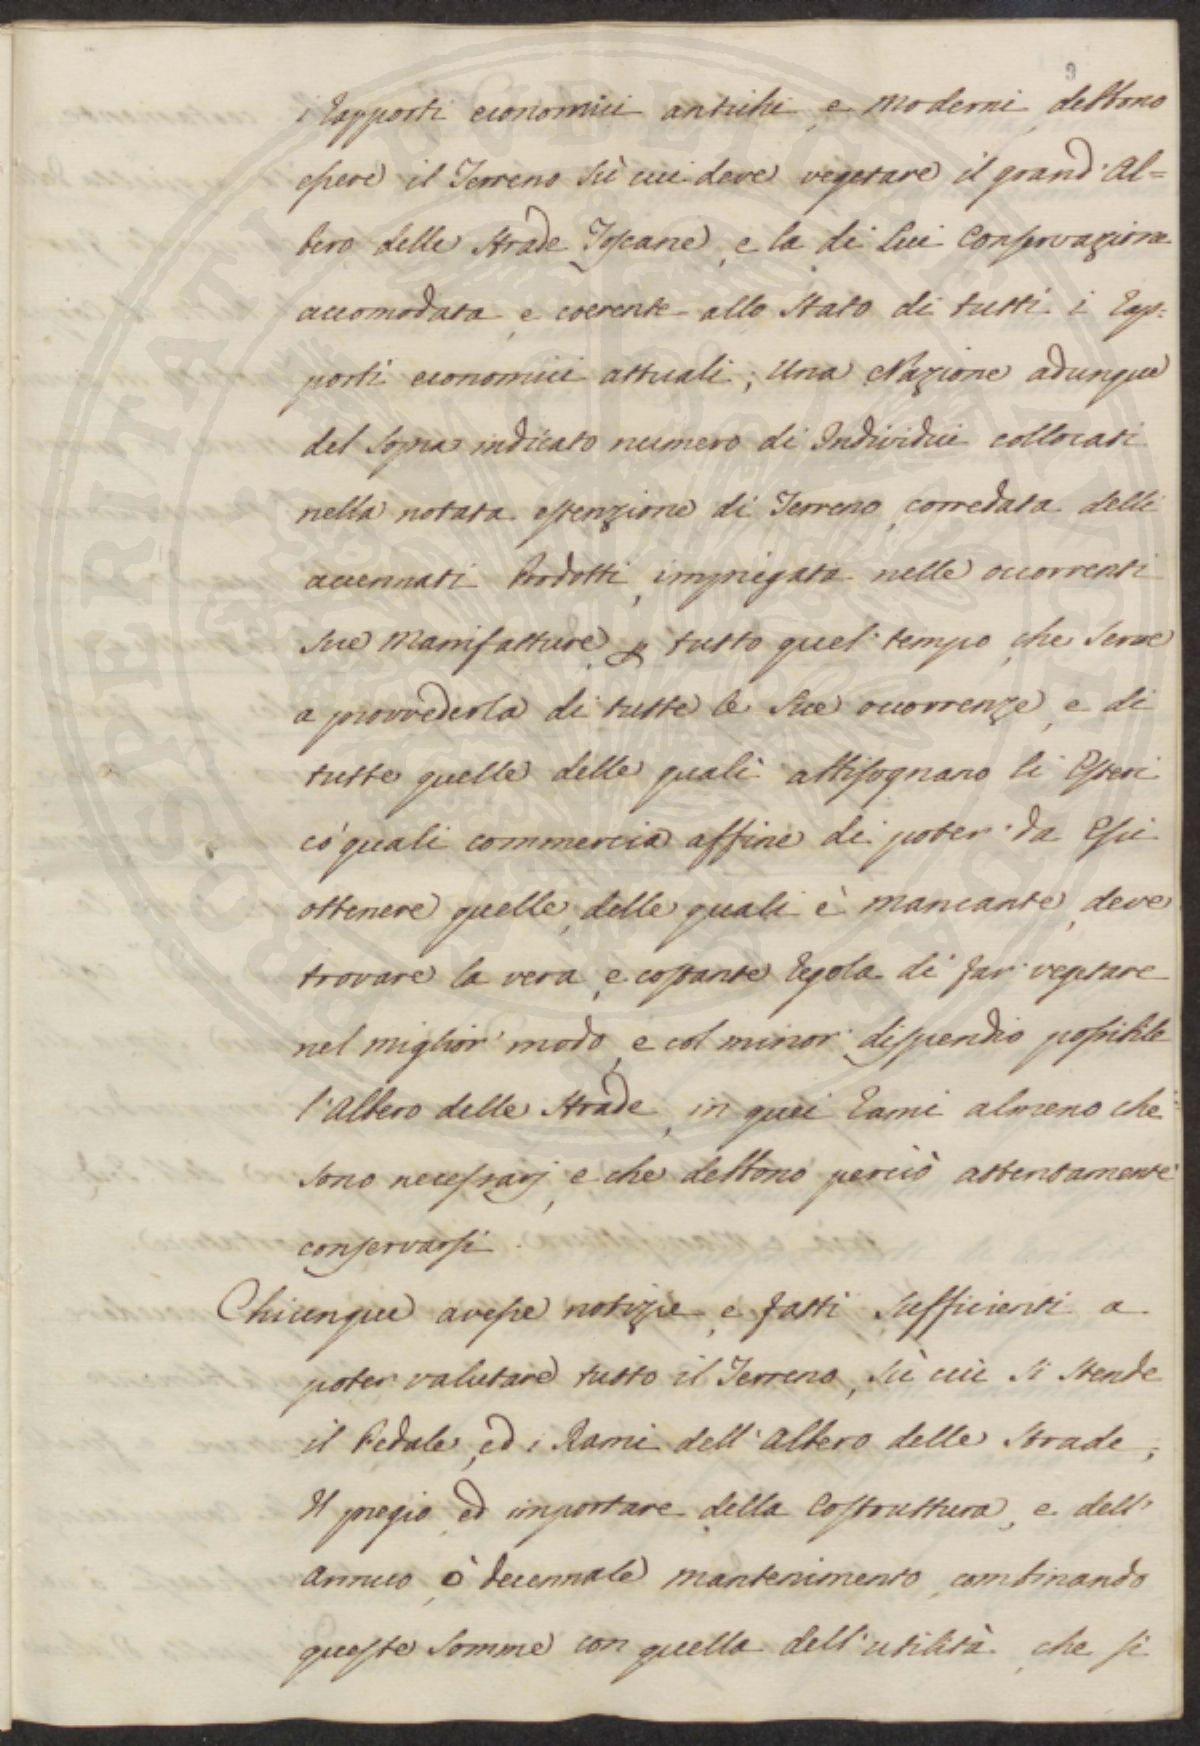 9
i Rapporti economici antichi, e Moderni, debbono
essere il Terreno sù cui deve vegetare il grand'Al=
bero delle Strade Toscane, e la di lui Conservazione
accomodata, e coerente allo Stato di tutti i Rap=
porti economici attuali; Una Nazione adunque
del sopra indicato numero di Individui collocati
nella notata estenzione di Terreno, corredata delli
accennati Prodotti, impiegata nelle occorrenti
sue Manifatture, p tutto quel tempo, che serve
a provvederla di tutte le sue occorrenze, e di
tutte quelle delle quali abbisognano li Esteri
co' quali commercia affine di poter da Essi
ottenere quelle, delle quali è mancante, deve
trovare la vera, e costante Regola di far vegetare
nel miglior modo, e col minor dispendio possibile
l'Albero delle Strade, in quei Rami almeno che
sono necessarj, e che debbono perciò attentamente
conservarsi.
Chiunque avesse notizie, e fatti sufficienti a
poter valutare tutto il Terreno, sù cui si stende
il Pedale, ed i Rami dell'Albero delle Strade;
Il pregio, ed importare della Costruttura, e dell'
annuo, ò decennale mantenimento, combinando
queste somme con quella dell'utilità, che si
PROSPERITATI PUBLICAE AUGENDAE